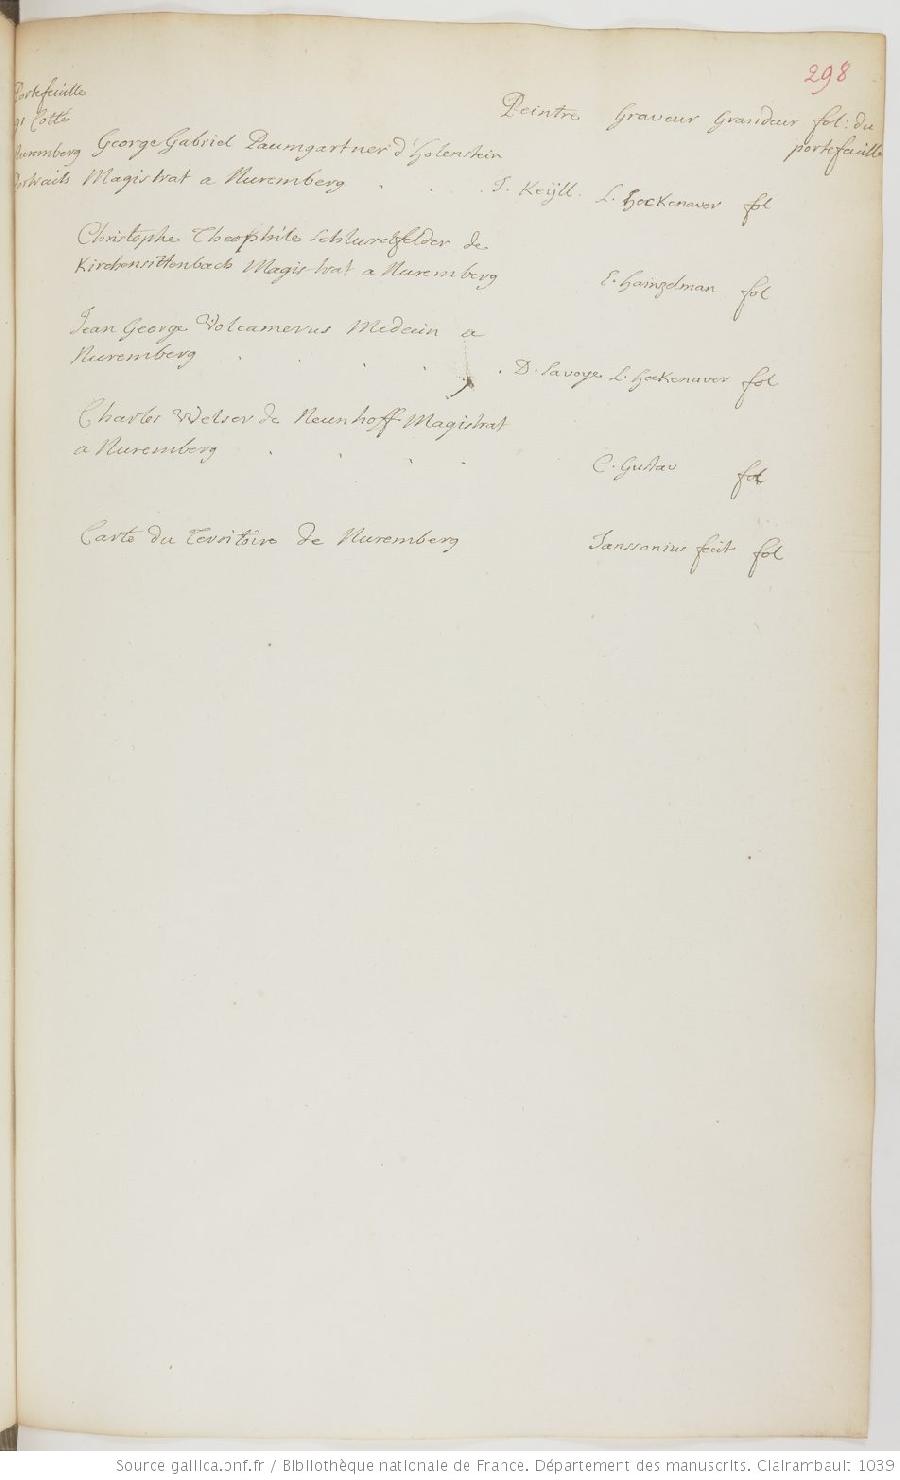 298
Portefeuille
Cotté
Nuremberg
Portraits
Peintre Graveur Grandeur fol: du
portefeuille
George Gabriel Paumgartner d'Holenstein
Magistrat a Nuremberg . . . J. Keÿll. L. Heckenaver fol
Christophe Theophile
de
Kirchensittenbach Magistrat a Nuremberg E. hainzelman fol
Jean George Volcamerus Medecin a
Nuremberg . . . . . D. Savoye L. heckenaver fol
Charles Welser de Neunhoff Magistrat
a Nuremberg . . . . C. Gustav fol
Carte du Territoire de Nuremberg Janssonius fecit fol
Source gallica.bnf.fr / Bibliothèque nationale de France. Département des manuscrits. Clairambault 1039